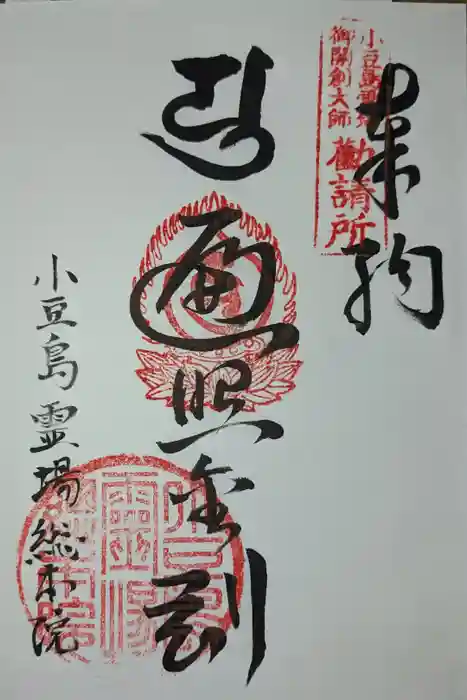 奉拝
小豆島霊場
御開創大師
勧請所
遍照金剛
小豆島霊場総本院